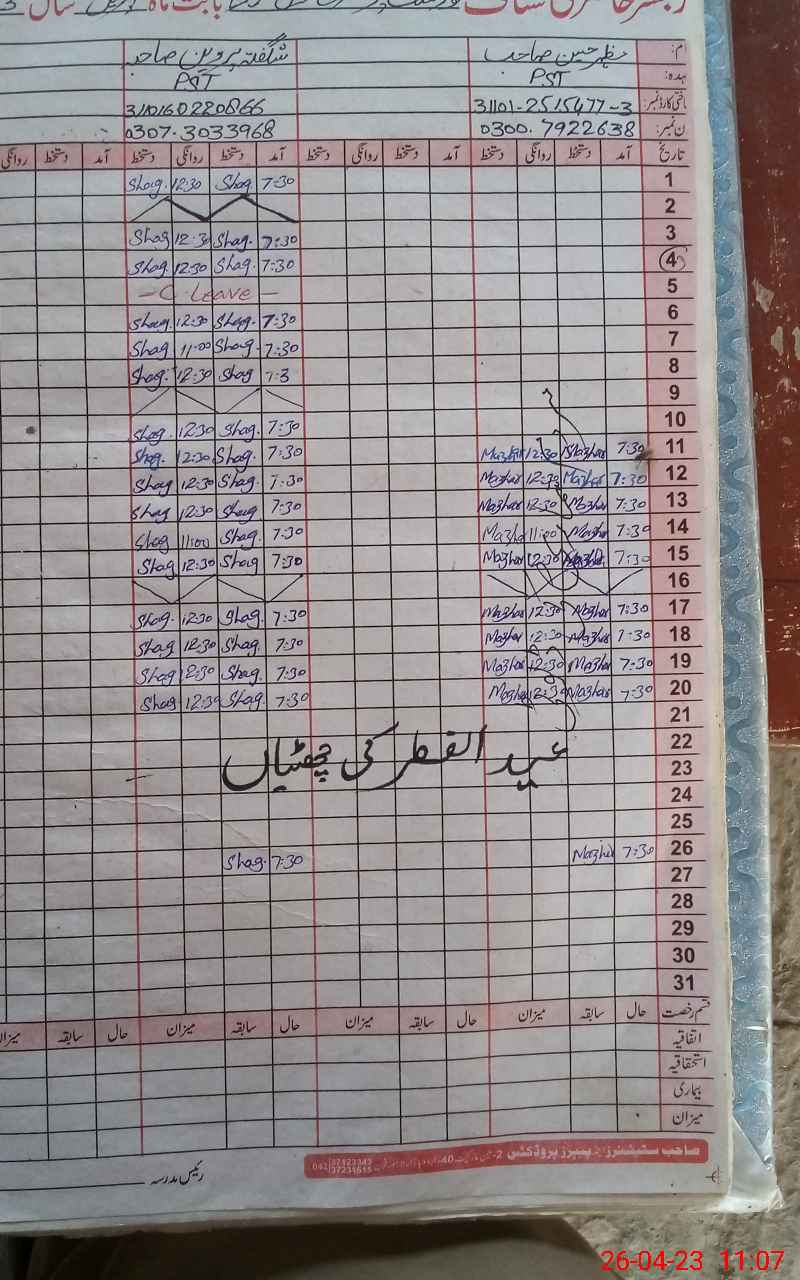 رجسٹر حاضری سٹاف بابت ماہ اپریل سال
نام: مظہر حسین صاحب شگفتہ پروین صاحبہ
عہدہ: PST PST
شناختی کارڈ نمبر: 31101-2515477-3 3110160220866
فون نمبر: 0300.7922638 0307.3033968
تاریخ آمد دستخط روانگی دستخط آمد دستخط روانگی دستخط آمد دستخط روانگی دستخط آمد دستخط روانگی
1 7:30 Shag. 12:30 Shag.
2
3 7:30 Shag. 12:30 Shag
4 7:30 Shag. 12:30 Shag.
5 - C Leave -
6 7:30 Shag. 12:30 Shag.
7 7:30 Shag. 11:00 Shag
8 7:3 Shag 12:30 Shag.
9
10 7:30 Shag. 12:30 Shag.
11 7:30 Mazhar 12:30 Mazhar 7:30 Shag. 12:30 Shag.
12 7:30 Mazhar 12:30 Mazhar 7:30 Shag. 12:30 Shag
13 7:30 Mazhar 12:30 Mazhar 7:30 Shag 12:30 Shag
14 7:30 Mazhar 11:00 Mazha 7:30 Shag. 11:00 Shag
15 7:30 Mazhar 12:30 Mazhar 7:30 Shag 12:30 Shag.
16
17 7:30 Mazhar 12:30 Mazhar 7:30 Shag. 12:30 Shag.
18 7:30 Mazhar 12:30 Mazhar 7:30 Shag. 12:30 Shag
19 7:30 Mazhar 12:30 Mazhar 7:30 Shag. 12:30 Shag
20 7:30 Mazhar 12:30 Mazhar 7:30 Shag. 12:30 Shag
21
22
عید الفطر کی چھٹیاں
23
24
25
26 7:30 Mazhar 7:30 Shag.
27
28
29
30
31
قسم رخصت حال سابقہ میزان حال سابقہ میزان حال سابقہ میزان حال سابقہ میزان
اتفاقیہ
استحقاقیہ
بیماری
میزان
صاحب سٹیشنرز اینڈ پیپرز پروڈکٹس
رئیس مدرسہ
26-04-23 11:07